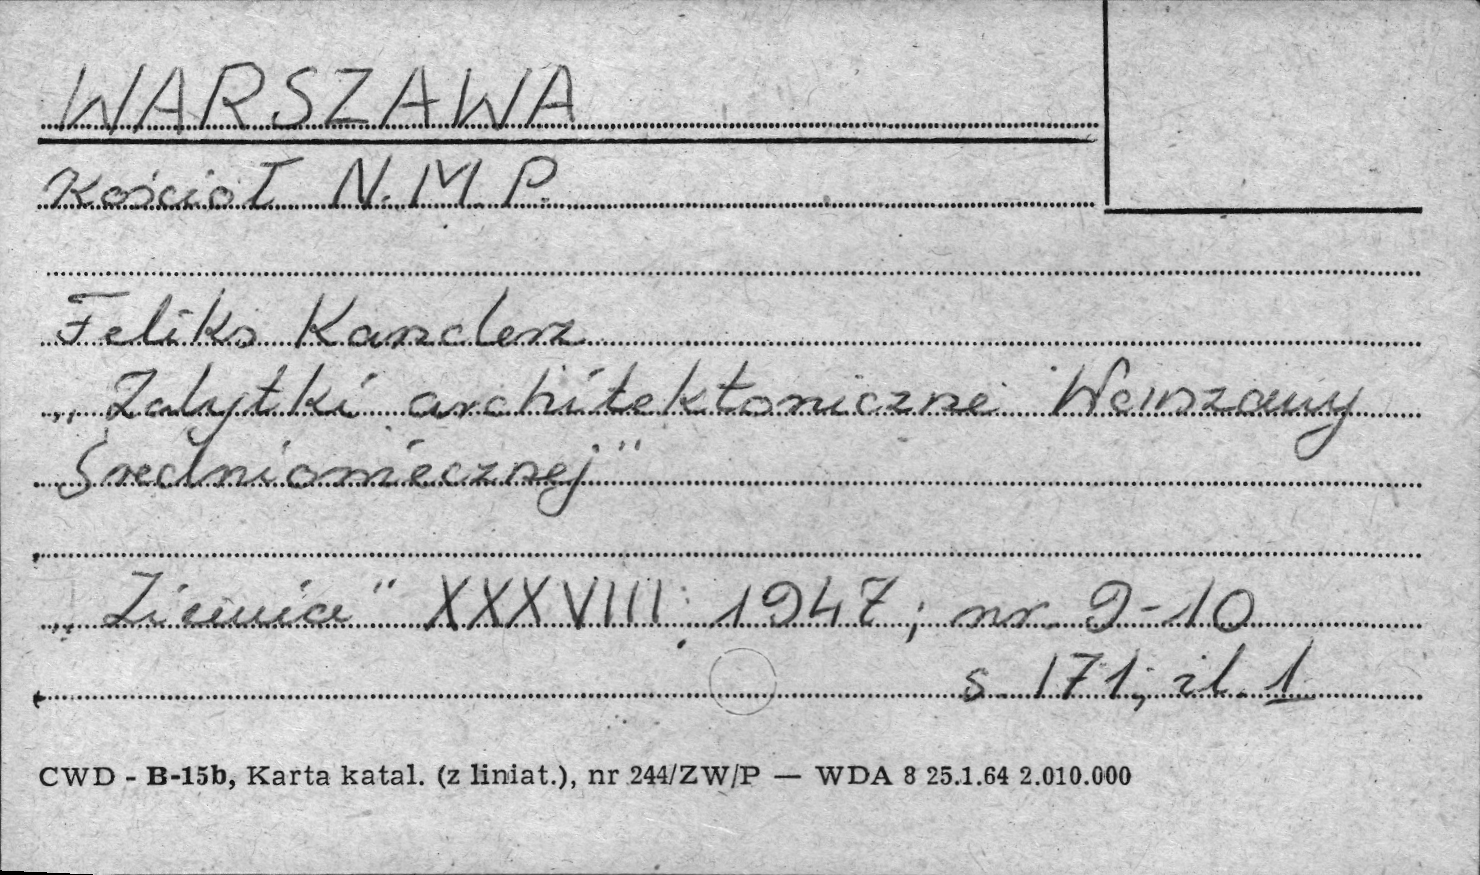 WARSZAWA
Kościół N.M.P.
Feliks Kanclerz
„Zabytki architektoniczne Warszawy
Średniowiecznej"
„Ziemia" XXXVIII: 1947; nr. 9-10
s. 171; il. 1
CWD - B-15b, Karta katal. (z liniat.), nr 244/ZW/P — WDA 8 25.1.64 2.010.000